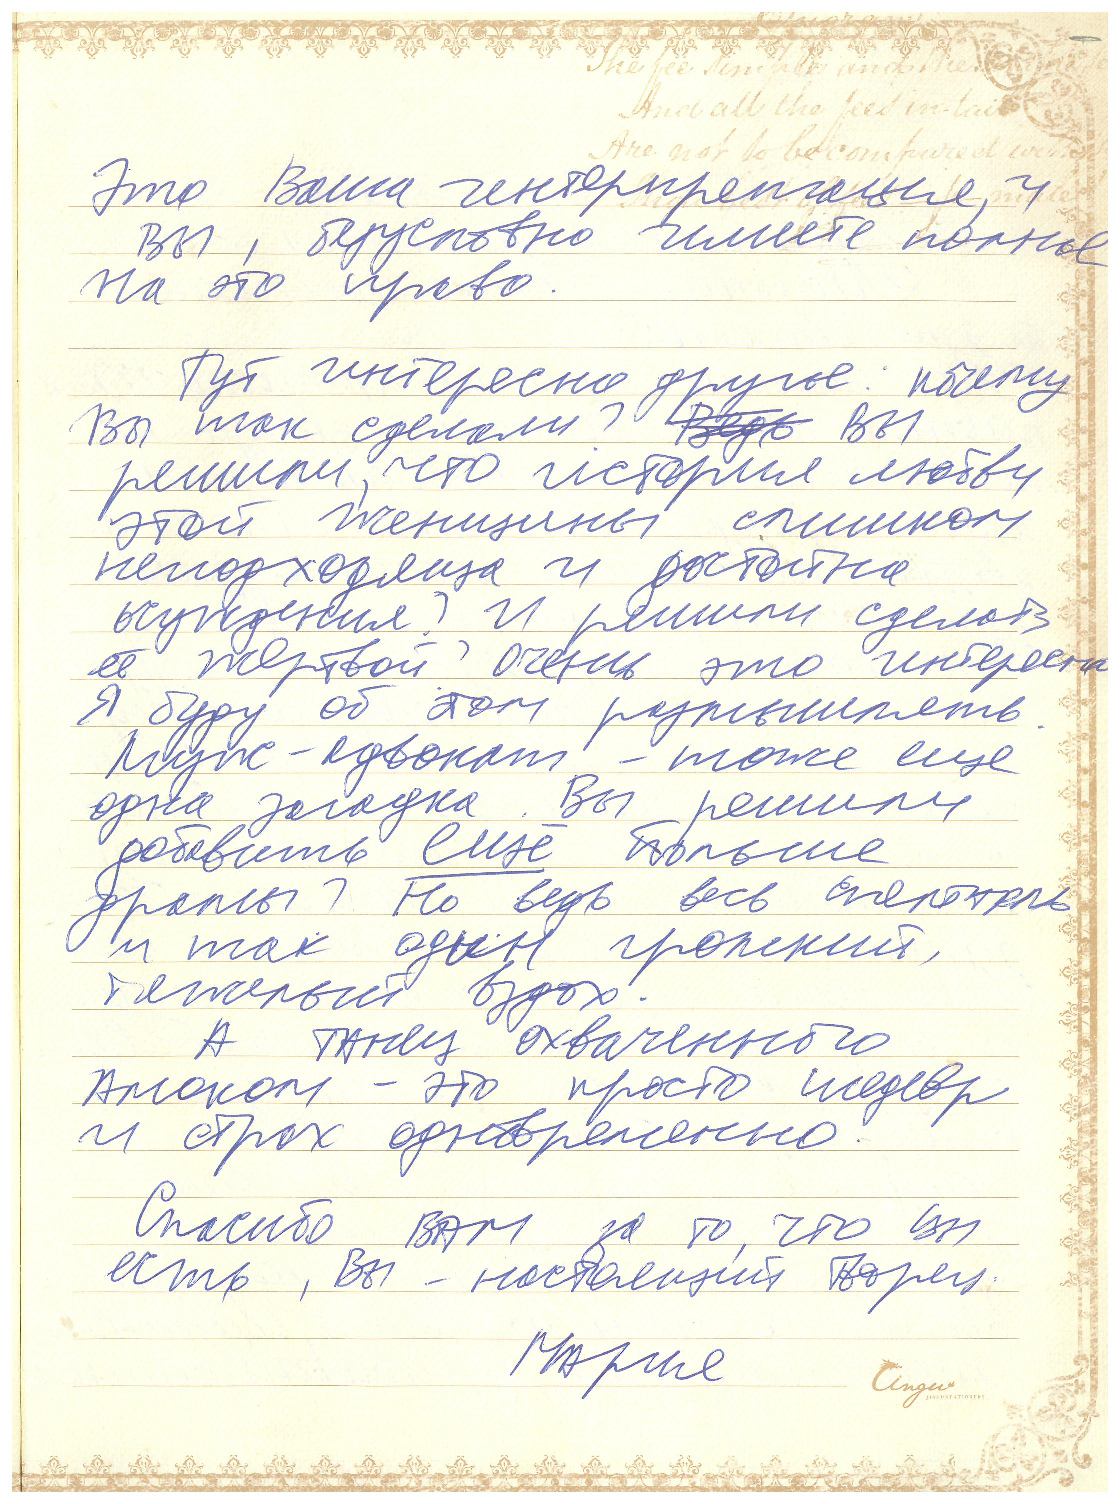 The fee simple and the
And all the fees in-tail
Are not to be compared with
Это Ваша интерпретация, и
Вы, безусловно имеете полное
на это право.
Тут интересно другое: почему
Вы так сделали? Ведь Вы
решили, что история любви
этой женщины слишком
неподходяща и достойна
осуждения? И решили сделать
её жертвой? Очень это интересно
Я буду об этом размышлять.
Муж-адвокат – тоже еще
одна загадка. Вы решили
добавить ещё больше
драмы? Но ведь весь спектакль
и так один громкий,
тяжелый вздох.
А танец охваченного
амоком – это просто шедевр
и страх одновременно.
Спасибо Вам за то, что Вы
есть, Вы – настоящий Творец.
Мария